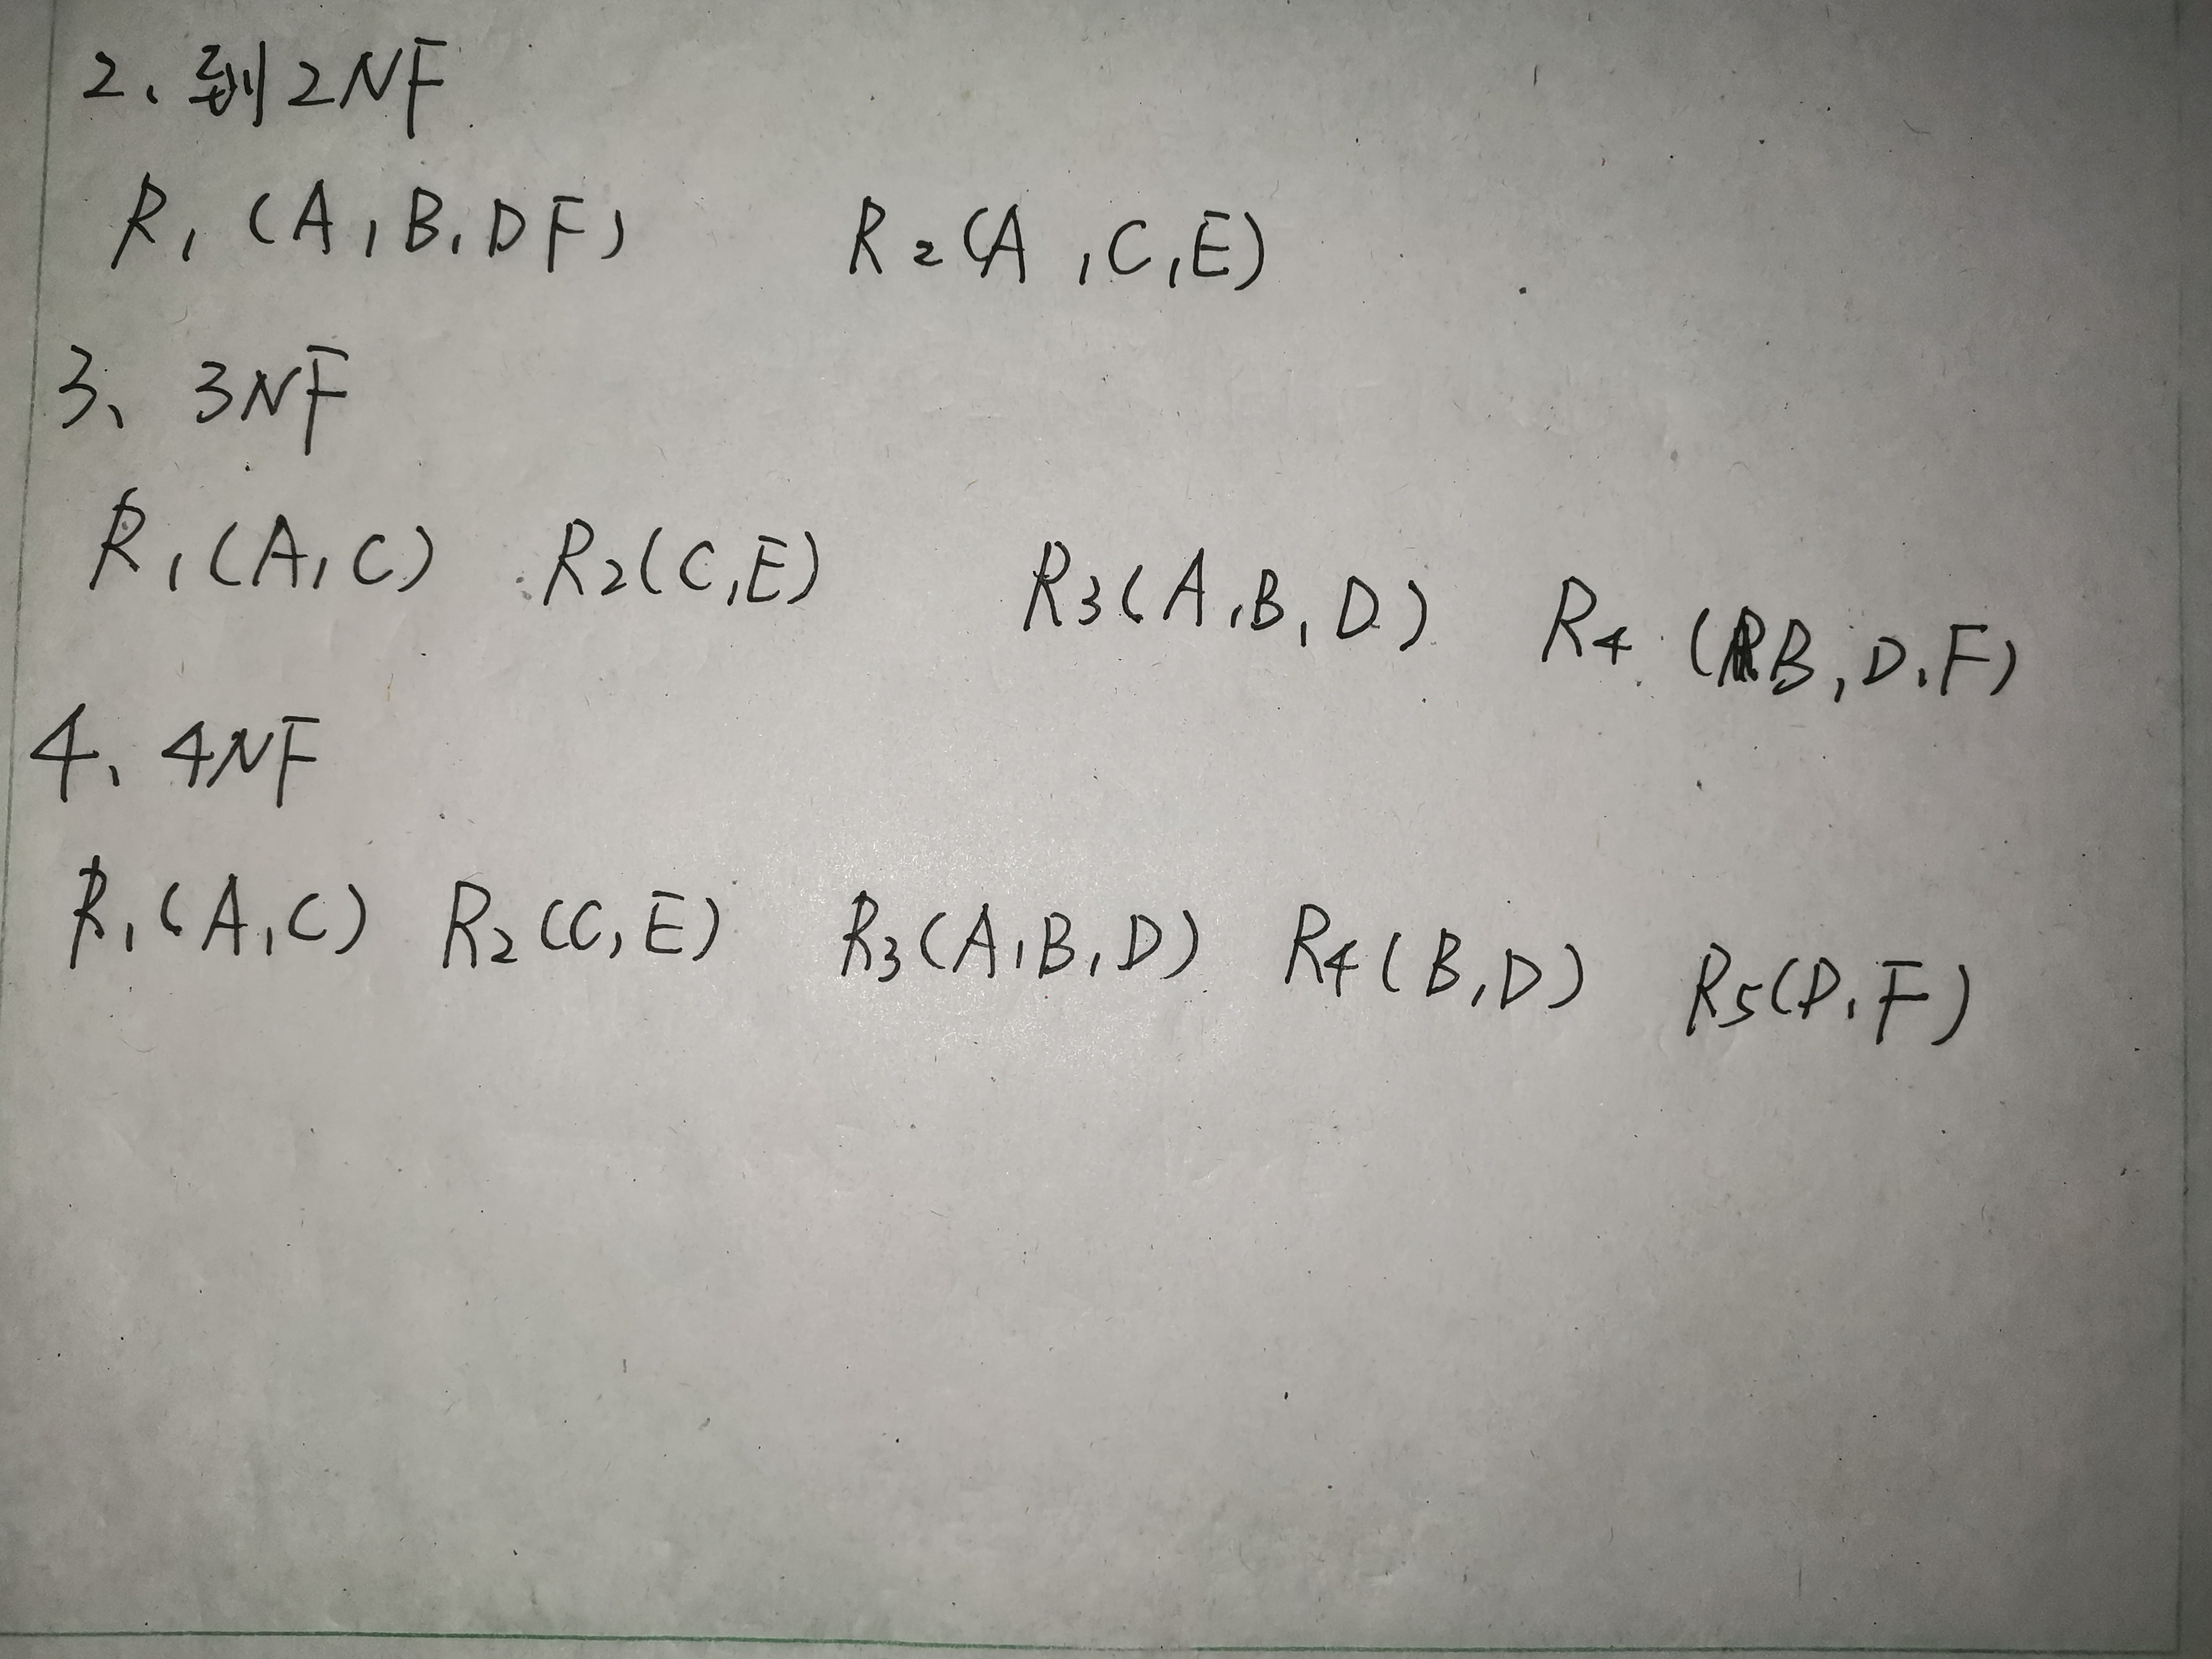 2、到2NF
R1(A,B,DF) R2(A,C,E)
3、3NF
R1(A,C) R2(C,E) R3(A,B,D) R4(B,D,F)
4、4NF
R1(A,C) R2(C,E) R3(A,B,D) R4(B,D) R5(D,F)